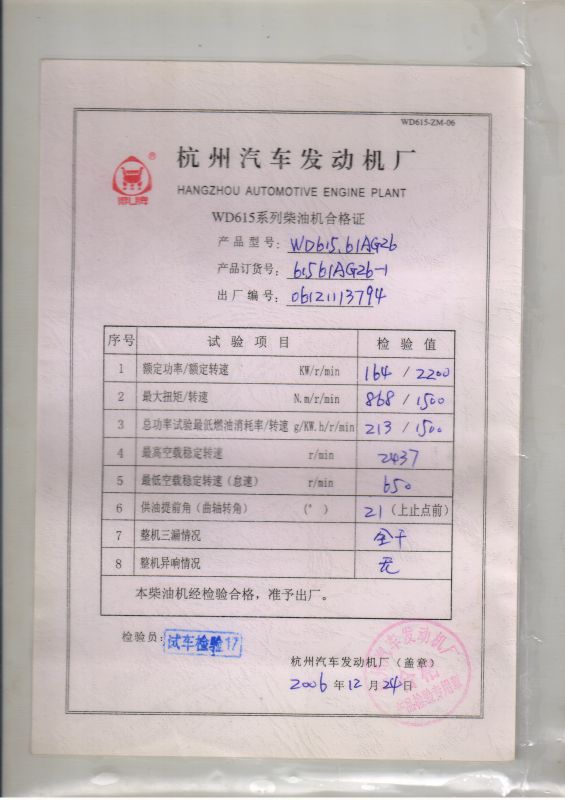 WD615-ZM-06
®
杭州汽车发动机厂
HANGZHOU AUTOMOTIVE ENGINE PLANT
WD615系列柴油机合格证
产品型号: WD615.61AG26
产品订货号: 61561AG26-1
出厂编号: 06121113794
序号 试验项目 检验值
1 额定功率/额定转速 KW/r/min 164 / 2200
2 最大扭矩/转速 N.m/r/min 868 / 1500
3 总功率试验最低燃油消耗率/转速 g/KW.h/r/min 213 / 1500
4 最高空载稳定转速 r/min 2437
5 最低空载稳定转速(怠速) r/min 650
6 供油提前角(曲轴转角) (°) 21 (上止点前)
7 整机三漏情况 全干
8 整机异响情况 无
本柴油机经检验合格,准予出厂。
检验员: 试车检验17
杭州汽车发动机厂(盖章)
2006年12月24日
汽车发动机厂
产品检验专用章